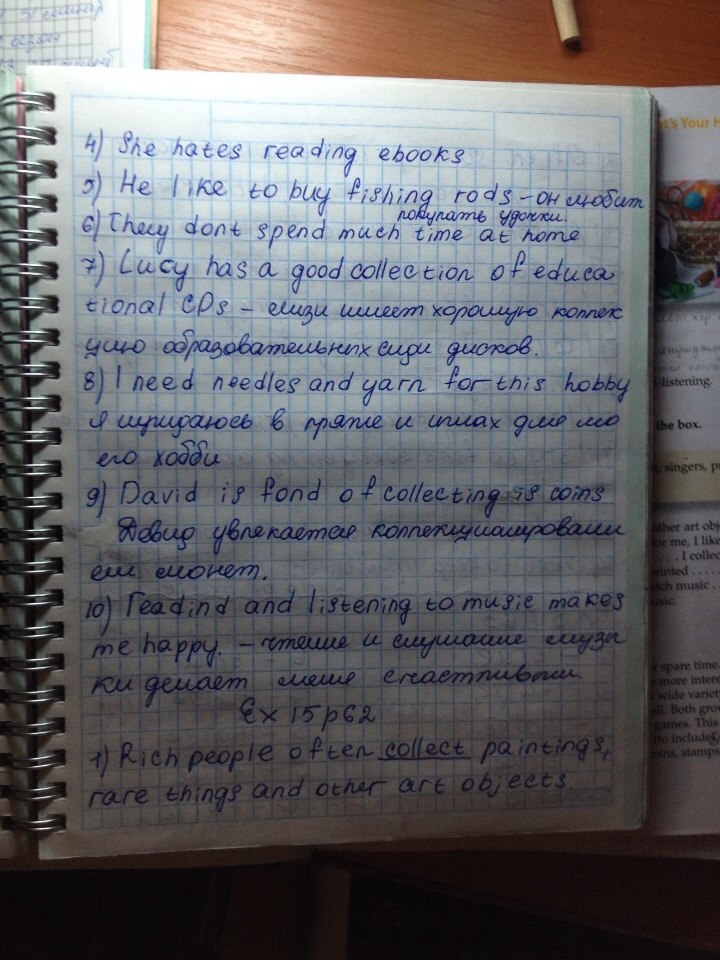 4) She hates reading ebooks
5) He like to buy fishing rods – он любит
покупать удочки.
6) They dont spend much time at home
7) Lucy has a good collection of educa
tional CDs – лизи имеет хорошую коллек
цию образовательных сиди дисков.
8) I need needles and yarn for this hobby
я нуждаюсь в пряже и иглах для мо
его хобби
9) David is fond of collecting is coins
Дэвид увлекается коллекцианировани
ем монет.
10) Readind and listening to music makes
me happy. – чтение и слушание музы
ки делает меня счастливым
Ex 15 p62
1) Rich people often collect paintings,
rare things and other art objects
t's Your H
listening.
the box.
t, singers, p
other art obj
for me, I like
. . . I collec
printed . . . .
atch music . .
usic.
r spare time.
more intere
wide variet
all. Both grov
games. This
(to include
oins, stamps